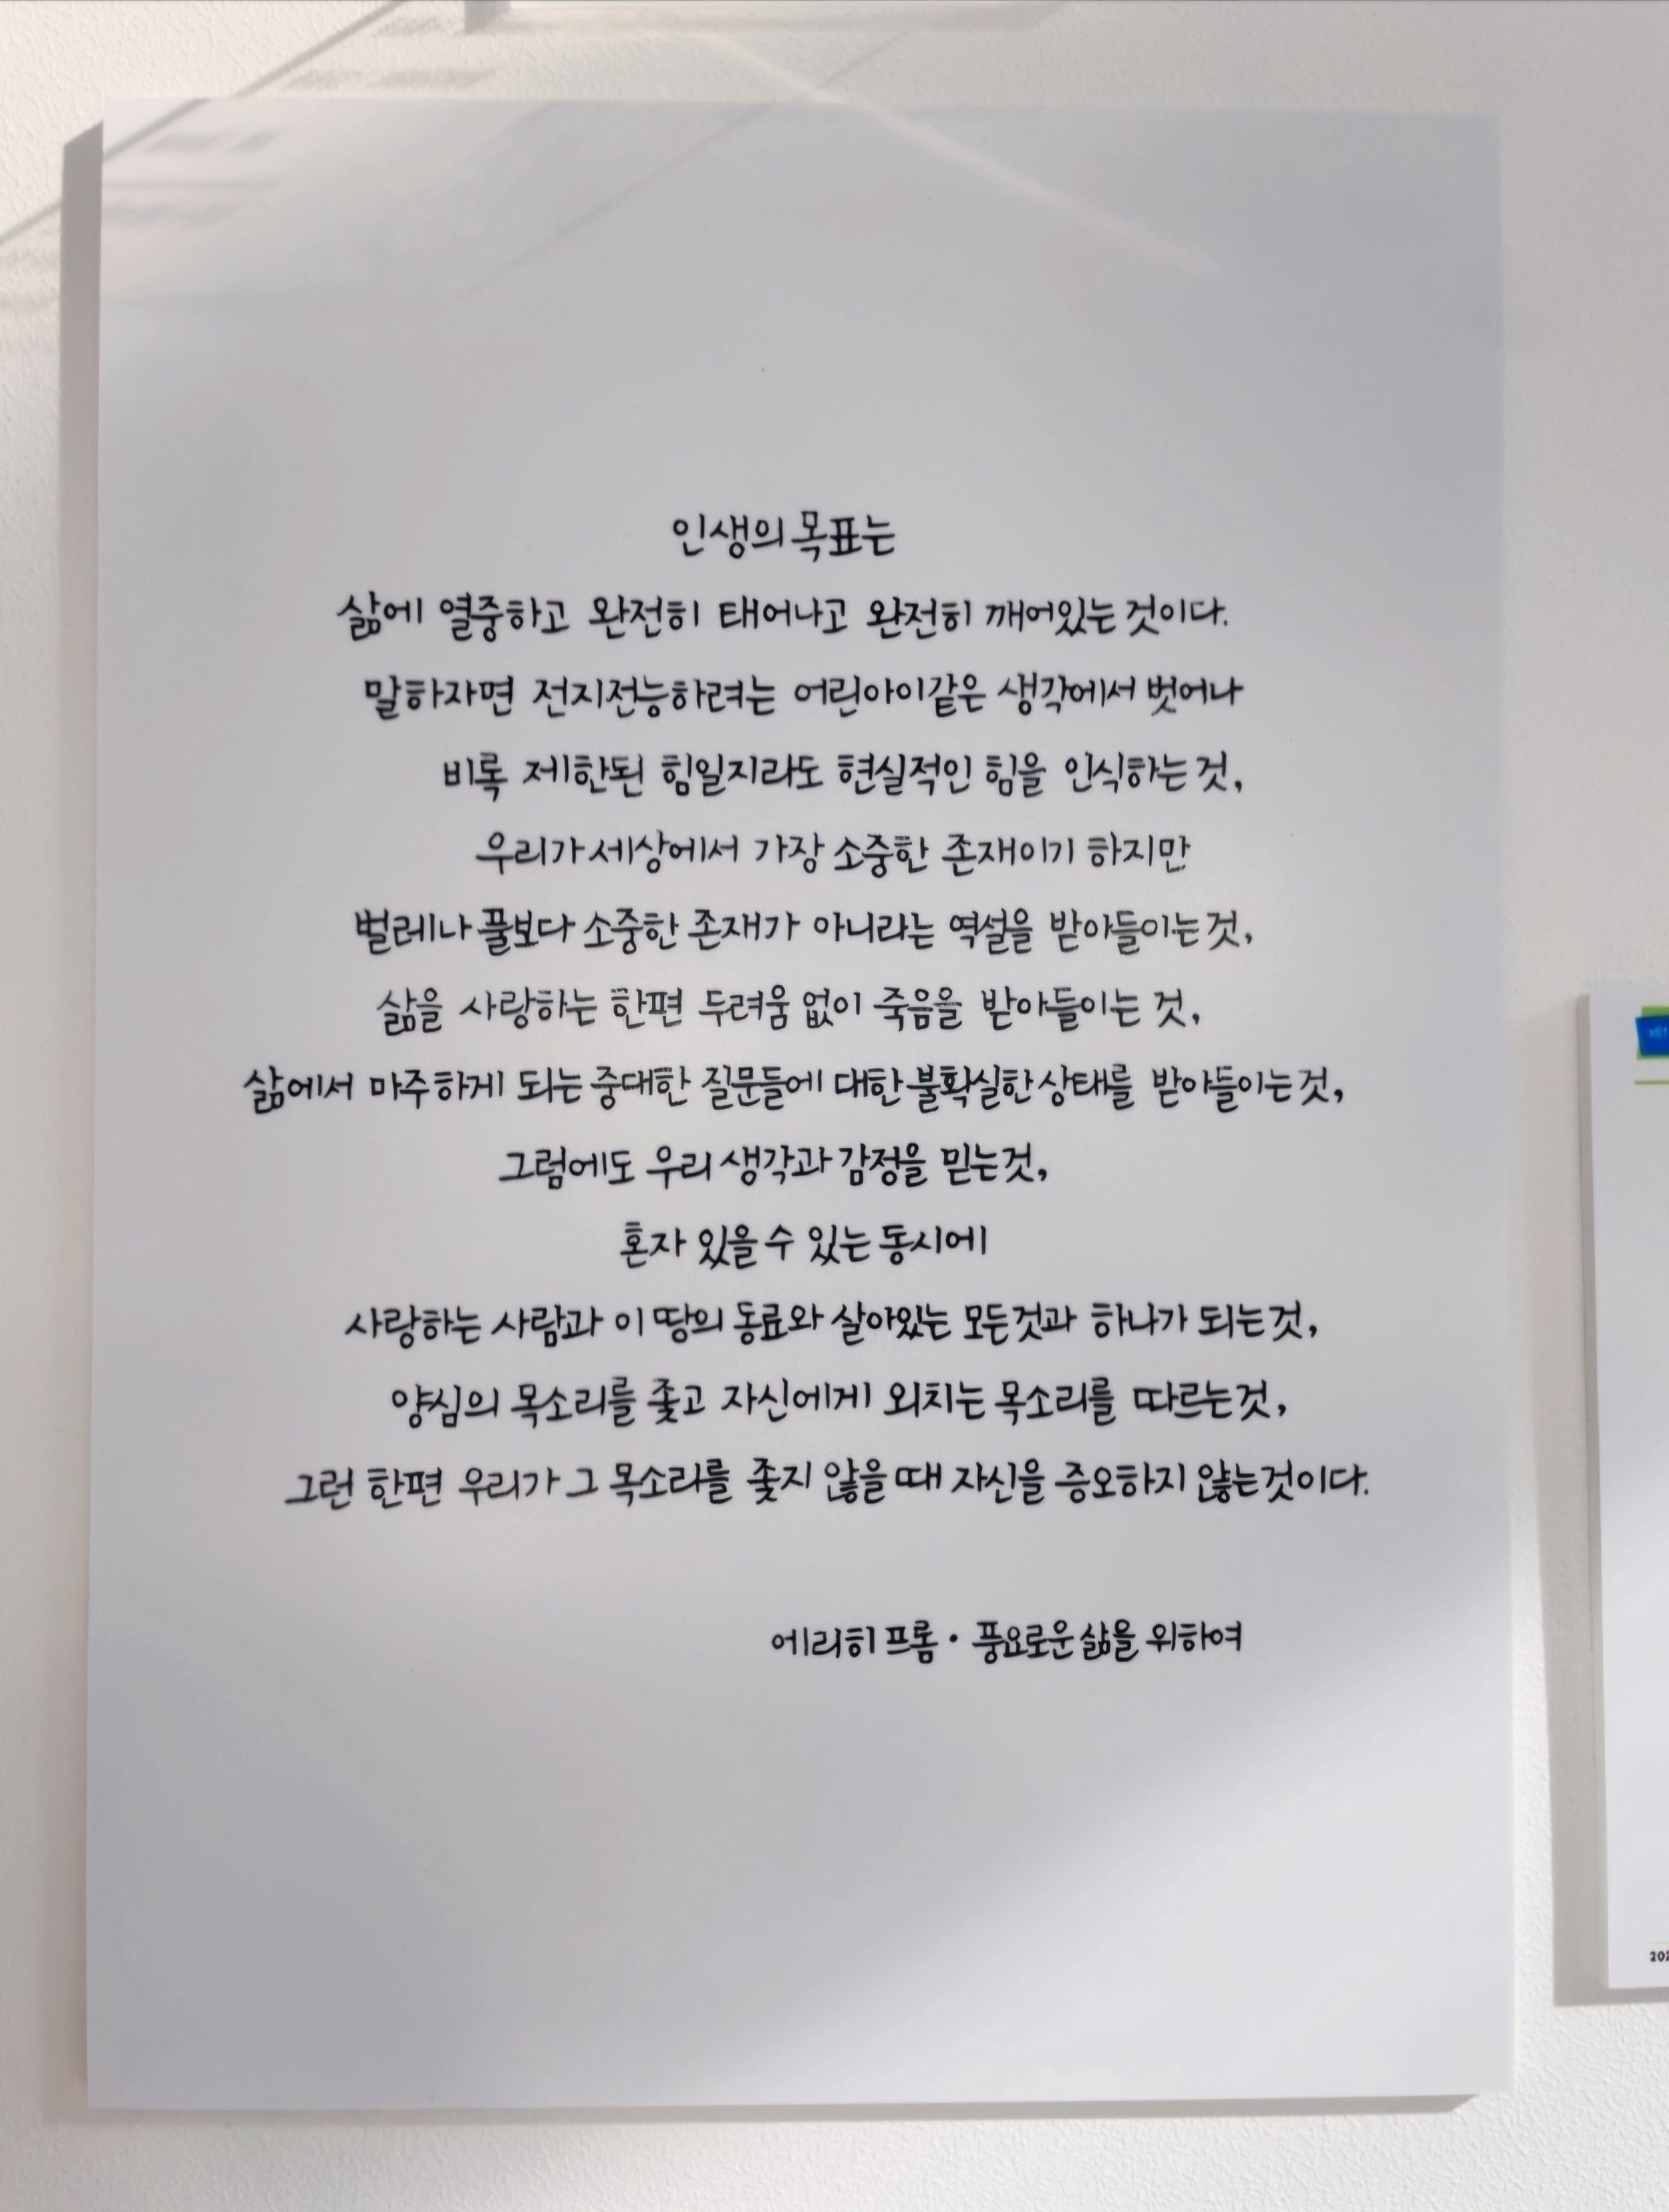 인생의 목표는
삶에 열중하고 완전히 태어나고 완전히 깨어있는 것이다.
말하자면 전지전능하려는 어린아이같은 생각에서 벗어나
비록 제한된 힘일지라도 현실적인 힘을 인식하는 것,
우리가 세상에서 가장 소중한 존재이기 하지만
벌레나 풀보다 소중한 존재가 아니라는 역설을 받아들이는 것,
삶을 사랑하는 한편 두려움 없이 죽음을 받아들이는 것,
삶에서 마주하게 되는 중대한 질문들에 대한 불확실한 상태를 받아들이는 것,
그럼에도 우리 생각과 감정을 믿는 것,
혼자 있을 수 있는 동시에
사랑하는 사람과 이 땅의 동료와 살아있는 모든것과 하나가 되는 것,
양심의 목소리를 좇고 자신에게 외치는 목소리를 따르는 것,
그런 한편 우리가 그 목소리를 좇지 않을 때 자신을 증오하지 않는 것이다.
에리히 프롬 · 풍요로운 삶을 위하여